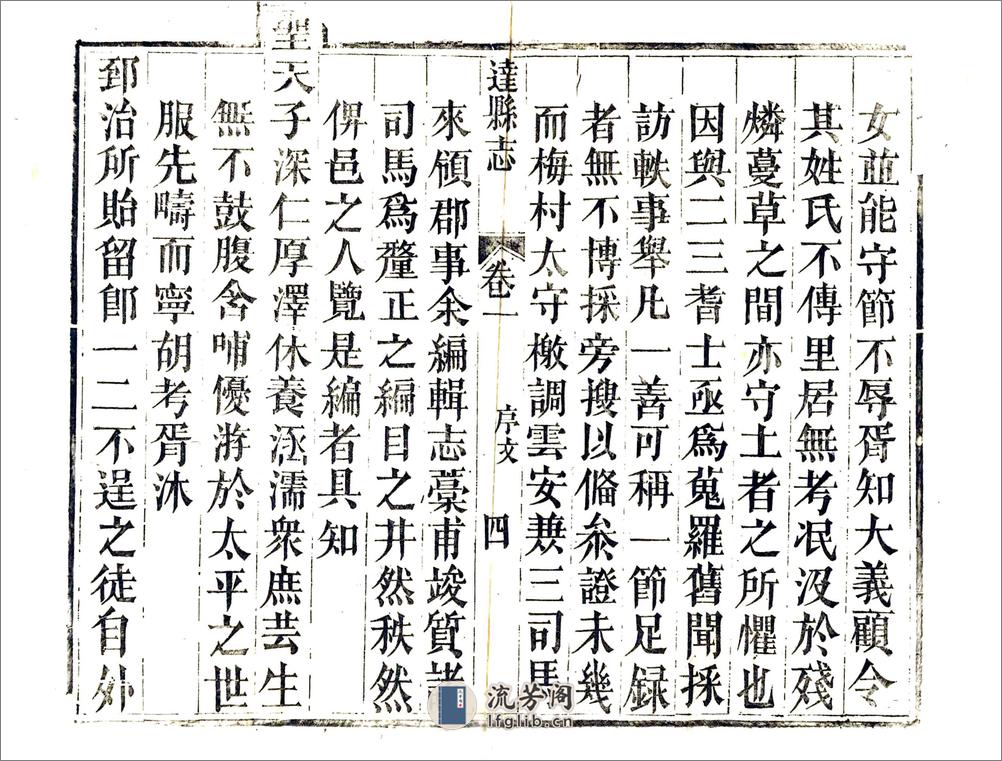 女並能守節不辱胥知大義顧令
其姓氏不傳里居無考冺沒於殘
燐蔓草之間亦守土者之所懼也
因與二三耆士亟爲蒐羅舊聞採
訪軼事舉凡一善可稱一節足録
者無不博採旁搜以偹叅證未幾
而梅村太守檄調雲安兼三司馬
達縣志
卷一
序文
四
來領郡事余編輯志藁甫竣質諸
司馬爲釐正之編目之井然秩然
俾邑之人覽是編者具知
聖天子深仁厚澤休養涵濡衆庶芸生
無不鼓腹含哺優游於太平之世
服先疇而寧胡考胥沐
郅治所貽留卽一二不逞之徒自外
流芳阁
lfglib.cn